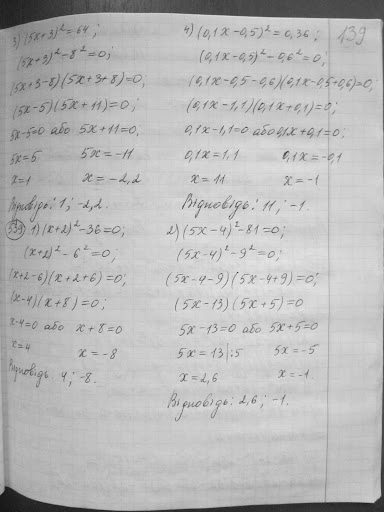 139
3) (5x+3)² = 64;
(5x+3)² - 8² = 0;
(5x+3-8)(5x+3+8)=0;
(5x-5)(5x+11)=0;
5x-5=0 або 5x+11=0;
5x=5 5x=-11
x=1 x=-2,2
Відповідь: 1; -2,2.
4) (0,1x-0,5)² = 0,36;
(0,1x-0,5)² - 0,6² = 0;
(0,1x-0,5-0,6)(0,1x-0,5+0,6)=0;
(0,1x-1,1)(0,1x+0,1)=0;
0,1x-1,1=0 або 0,1x+0,1=0;
0,1x=1,1 0,1x=-0,1
x=11 x=-1
Відповідь: 11; -1.
1) (x+2)²-36=0;
(x+2)² - 6² = 0;
(x+2-6)(x+2+6)=0;
(x-4)(x+8)=0;
x-4=0 або x+8=0
x=4 x=-8
Відповідь. 4; -8.
2) (5x-4)²-81=0;
(5x-4)² - 9² = 0;
(5x-4-9)(5x-4+9)=0;
(5x-13)(5x+5)=0
5x-13=0 або 5x+5=0
5x=13|:5 5x=-5
x=2,6 x=-1.
Відповідь: 2,6; -1.